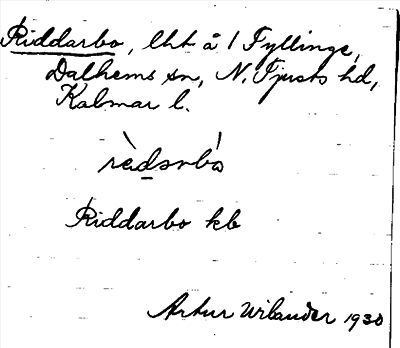 Riddarbo, lht å 1 Fyllinge,
Dalhems sn, N. Tjusts hd,
Kalmar l.
Riddarbo kb
Artur Wilander 1930